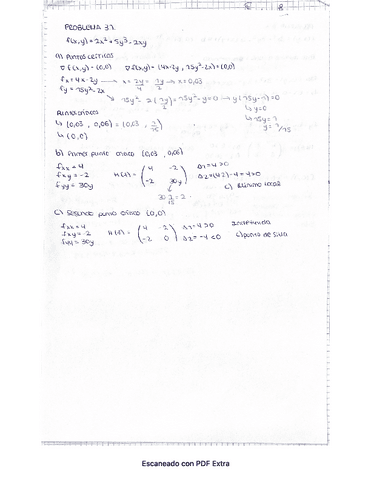 PROBLEMA 3.7
f(x,y) = 2x² + 5y³ - 2xy
a) PUNTOS CRÍTICOS
∇f(x,y) = (0,0) ∇f(x,y) = (4x-2y, 15y²-2x) = (0,0)
fx = 4x-2y → x = 2y/4 = y/2 → x = 0,03
fy = 15y²-2x
15y² - 2(y/2) = 15y² - y = 0 → y(15y-1) = 0
↳ y=0
↳ 15y=1
y = 1/15
PUNTOS CRÍTICOS
↳ (0,03, 0,06) = (0,03, 1/15)
↳ (0,0)
b) Primer punto crítico (0,03, 0,06)
fxx = 4
fxy = -2
fyy = 30y
H(f) = (4 -2
-2 30y)
Δ1 = 4 > 0
Δ2 = (4·2) - 4 = 4 > 0
↳ Mínimo local
30 · 1/15 = 2
c) Segundo punto crítico (0,0)
fxx = 4
fxy = -2
fyy = 30y
H(f) = (4 -2
-2 0)
Δ1 = 4 > 0
Δ2 = -4 < 0
↳ punto de silla
Escaneado con PDF Extra